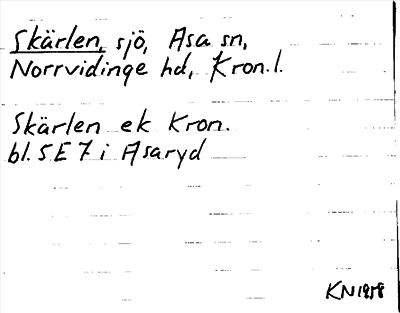 Skärlen, sjö, Asa sn,
Norrvidinge hd, Kron.l.
Skärlen ek Kron.
bl. 5 E 7 i Asaryd
KN 1958